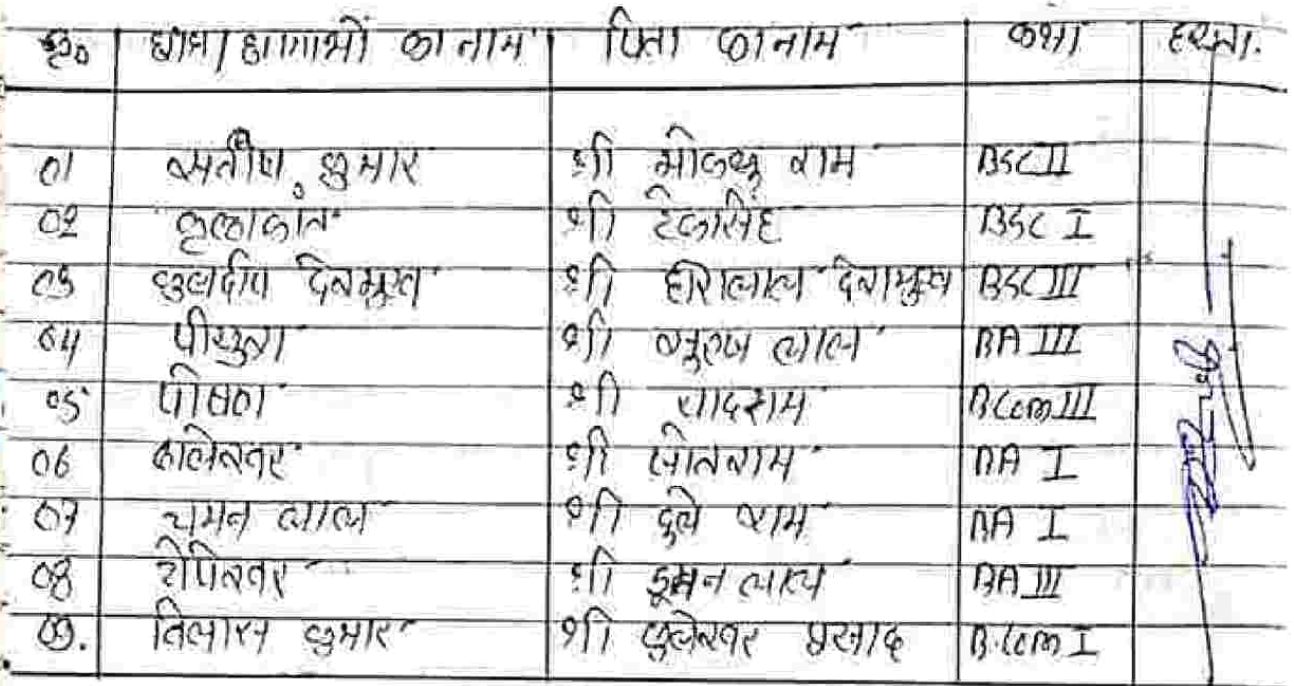 क्र० छात्र/छात्राओं का नाम पिता का नाम कक्षा हस्ता.
01 सतीष कुमार श्री भोलथू राम BSC II
02 कृलाकांत श्री टेकासिंह BSC I
03 कुलदीप देवमुख श्री हीरालाल देवामुख BSC III
04 पीयुश श्री लाल BA III
05 पोषण श्री यादराम B.Com III
06 कालेश्वर श्री सोनराम BA I
07 चमन लाल श्री दुले राम BA I
08 रोपेश्वर श्री डूमन लाल BA III
09. विलास कुमार श्री फुलेश्वर प्रसाद B.Com I